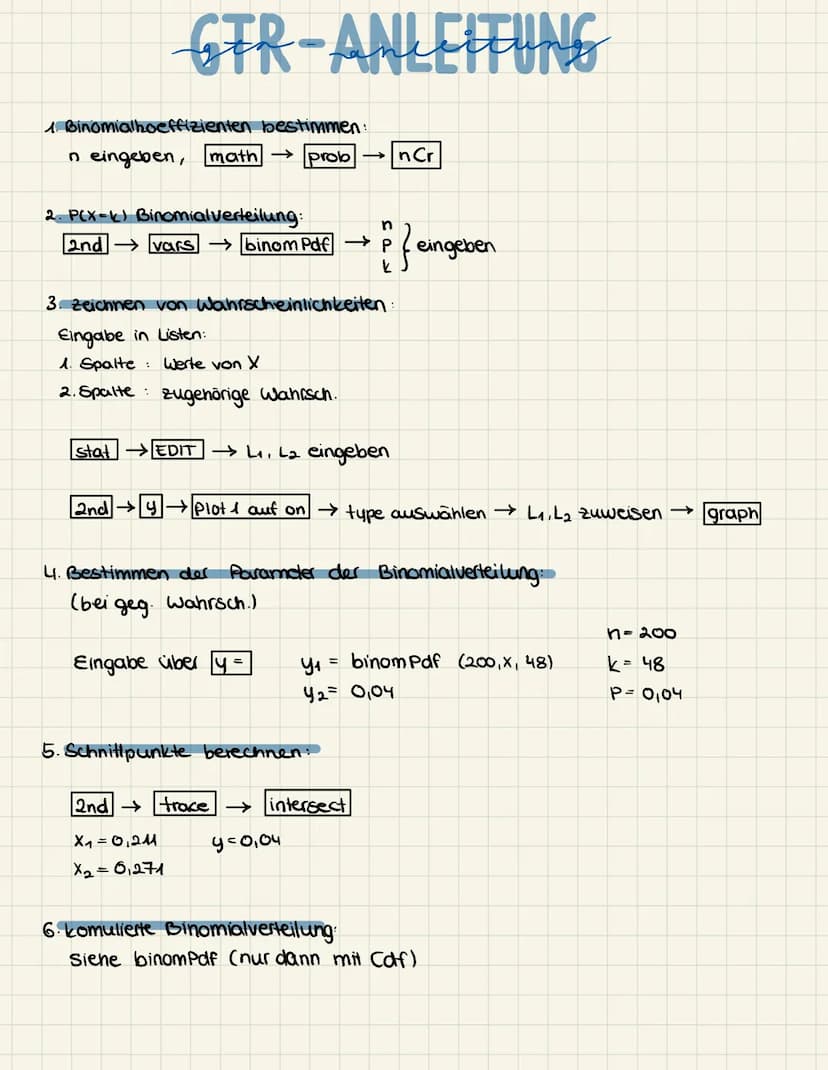 GTR-ANLEITUNG
gtr-anleitung
1. Binomialkoeffizienten bestimmen:
n eingeben, math → prob → nCr
2. P(X=k) Binomialverteilung:
2nd → vars → binom Pdf → n P k } eingeben
3. Zeichnen von Wahrscheinlichkeiten:
Eingabe in Listen:
1. Spalte : Werte von X
2. Spalte : zugehörige Wahrsch.
stat → EDIT → L1, L2 eingeben
2nd → y → Plot 1 auf on → type auswählen → L1, L2 zuweisen → graph
4. Bestimmen der Parameter der Binomialverteilung:
(bei geg. Wahrsch.)
n = 200
Eingabe über y = y1 = binom Pdf (200, X, 48) k = 48
y2 = 0,04 P = 0,04
5. Schnittpunkte berechnen:
2nd → trace → intersect
X1 = 0,211 y = 0,04
X2 = 0,271
6. komulierte Binomialverteilung:
siehe binomPdf (nur dann mit Cdf)